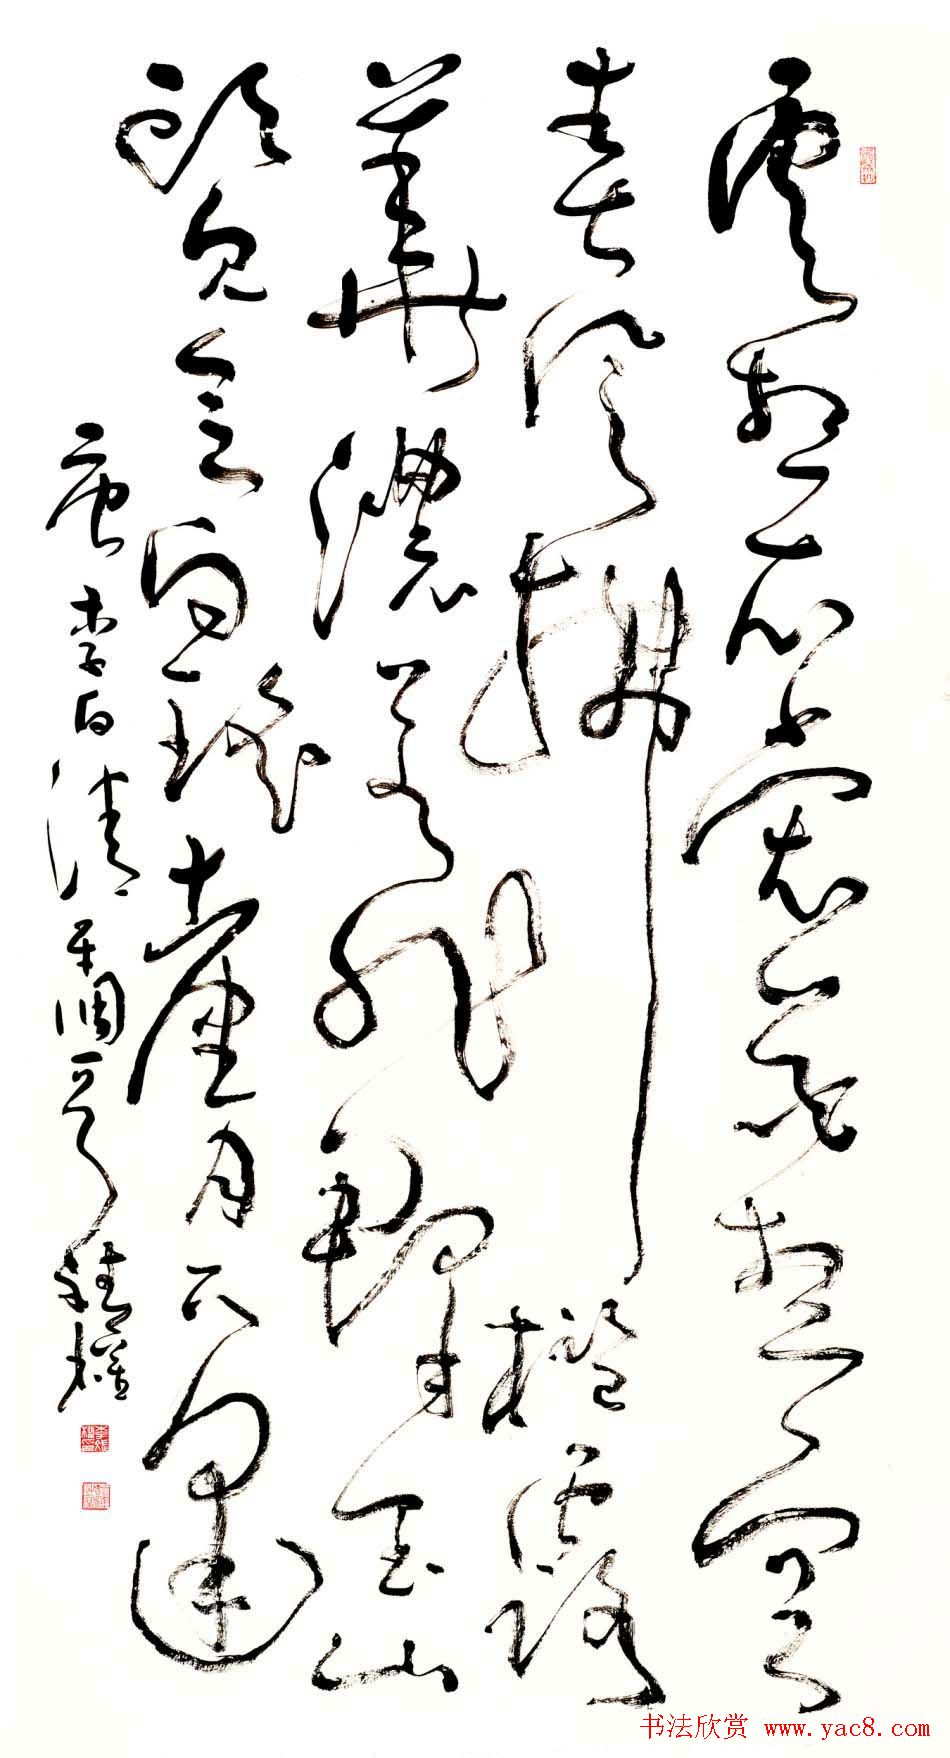 雲想衣裳花想容
春風拂檻露
華濃若非群玉山
頭見會向瑶臺月下逢
唐李白清平調一首
书法欣赏 www.yac8.com